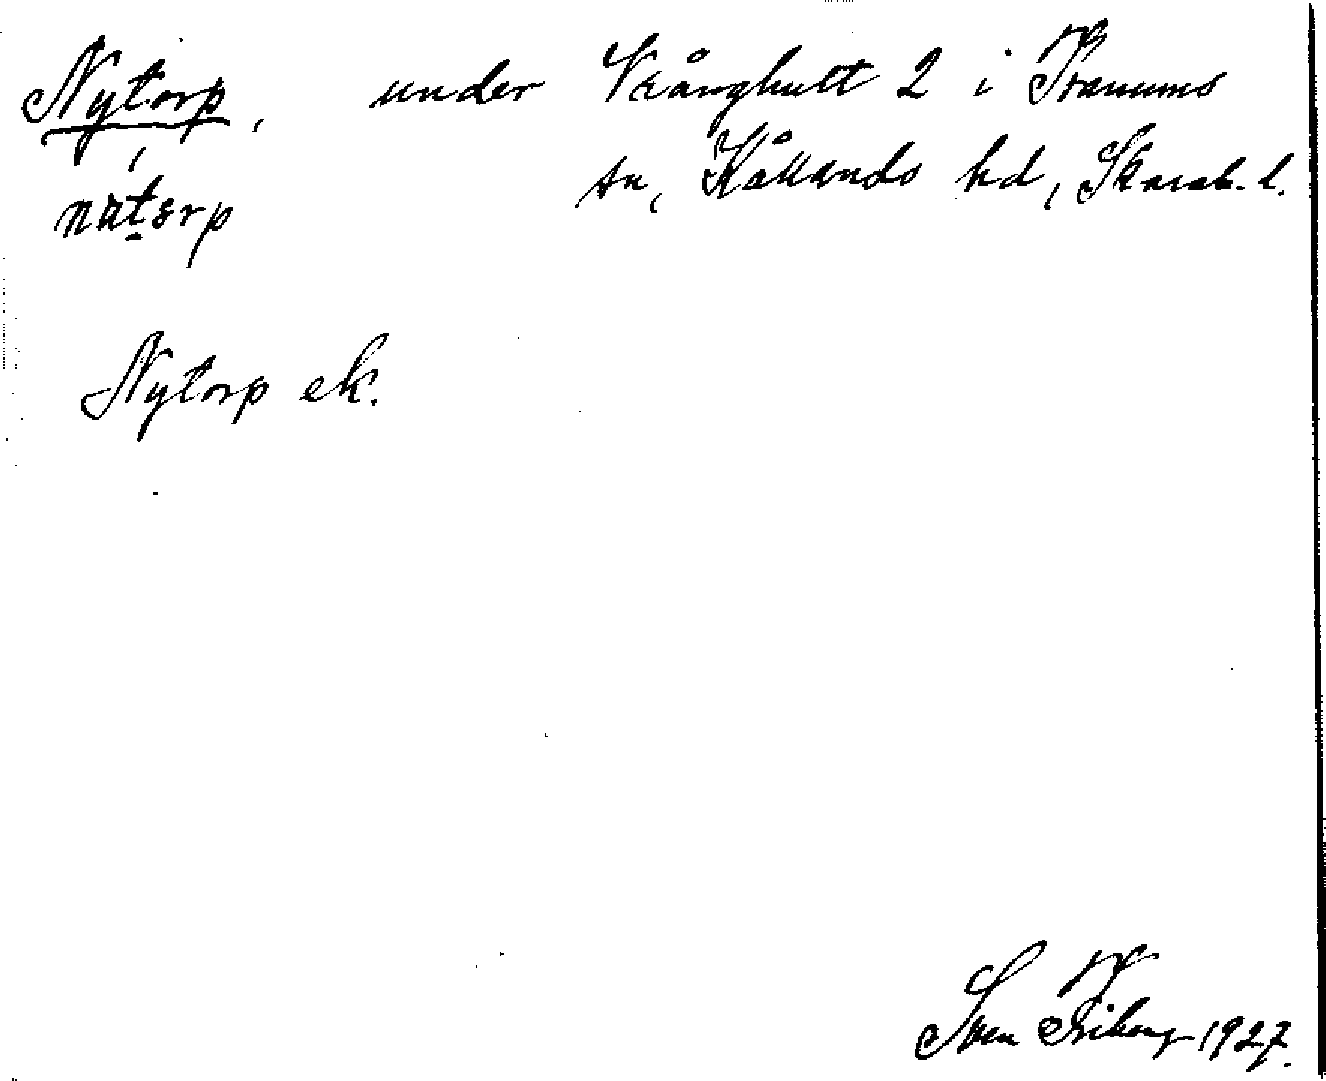 Nytorp, under Vrånghult 2 i Tranums
sn, Kållands hd, Skarab. l.
nꭒtɛrp
Nytorp ek.
Sven Friberg 1927.